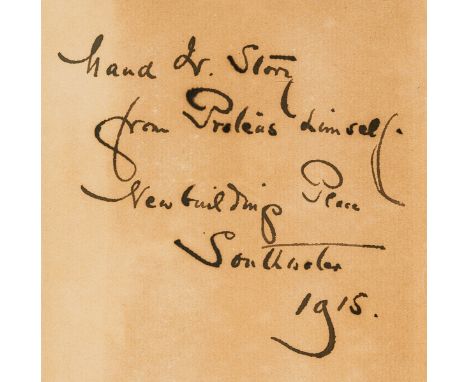 Maud Story
from Proteus himself.
Newbuilding Place
Southwater
1915.